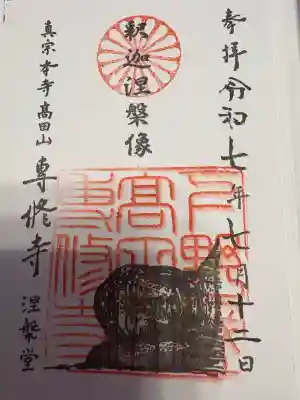 奉拝令和七年七月十二日
釈迦涅槃像
真宗本寺高田山専修寺涅槃堂